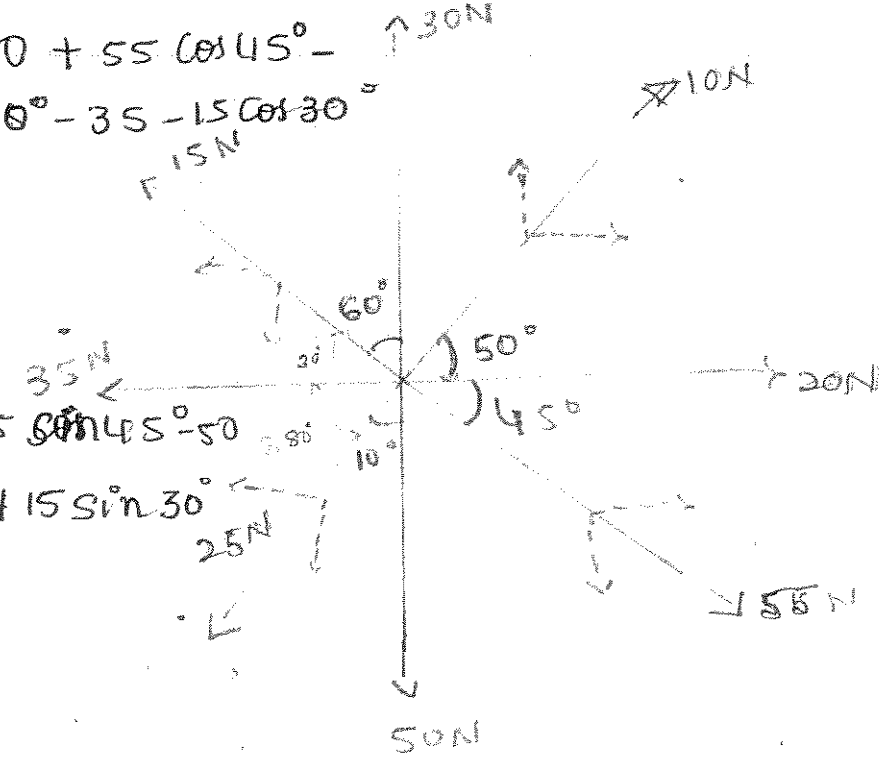 0 + 55 cos 45° -
0° - 35 - 15 cos 30°
30N
10N
15N
60°
50°
30°
35N
20N
45°
sin 45° - 50
80°
10°
15 sin 30°
25N
55N
50N